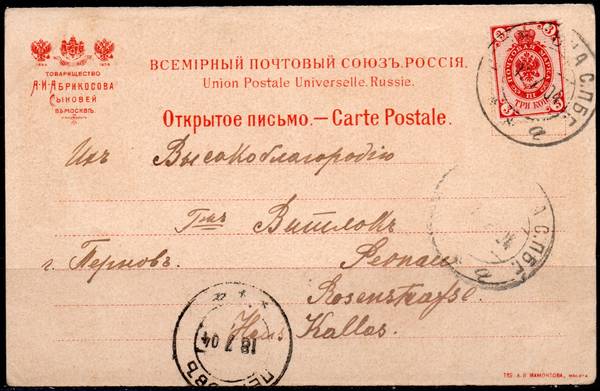 ТОВАРИЩЕСТВО
А·И·АБРИКОСОВА
СЫНОВЕЙ
ВЪ МОСКВѢ.
ВСЕМІРНЫЙ ПОЧТОВЫЙ СОЮЗЪ.РОССІЯ.
Union Postale Universelle. Russie.
Открытое письмо.—Carte Postale.
3 3
ТРИ КОП.
С.П.Б.
04
а
Ихъ Высокоблагородію
Гмъ Витлокъ
г. Перновъ.
Pernau
Rosenstrasse
Haus Kallas.
С.П.Б.
а
18 7 04
ТВО А. И. МАМОНТОВА, МОСКВА